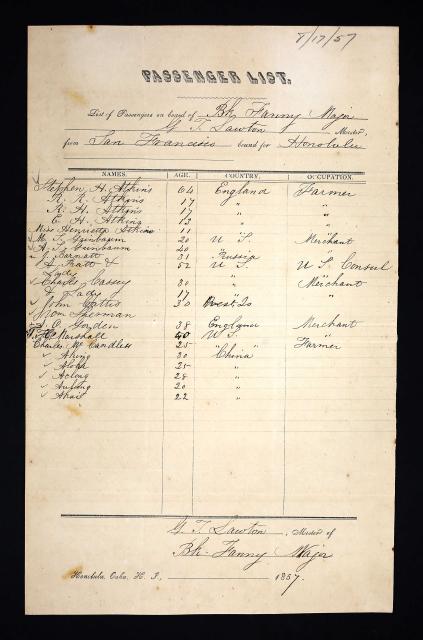 8/17/57
PASSENGER LIST.
List of Passengers on board of Bk. Fanny Major
G. T. Lawton Master,
from San Francisco bound for Honolulu
NAMES. AGE. COUNTRY. OCCUPATION.
Stephen H. Atkins 64 England Farmer
R. R. Atkins 17 " "
R. H. Atkins 17 " "
E. H. Atkins 13 "
Miss Henrietta Atkins 11 "
M. S. Grinbaum 20 U S. Merchant
A. S. Grinbaum 40 " "
J. Barnatt 31 Russia "
Pratt & 52 U S. U S. Consul
Lady
Charles Cassey 30 " Merchant
& Lady 17 " "
John Gattis 30 West Is
Thom Sherman
S. C. Gowden 38 England Merchant
Marshall 40 U S. "
Charles Mc Candless 25 " " Farmer
Ahing 30 China "
Aloha 25 "
Aclong 28 "
Ausing 20 "
Ahait 22 "
G. T. Lawton, Master of
Bk. Fanny Major
Honolulu, Oahu, H. I., 1857.